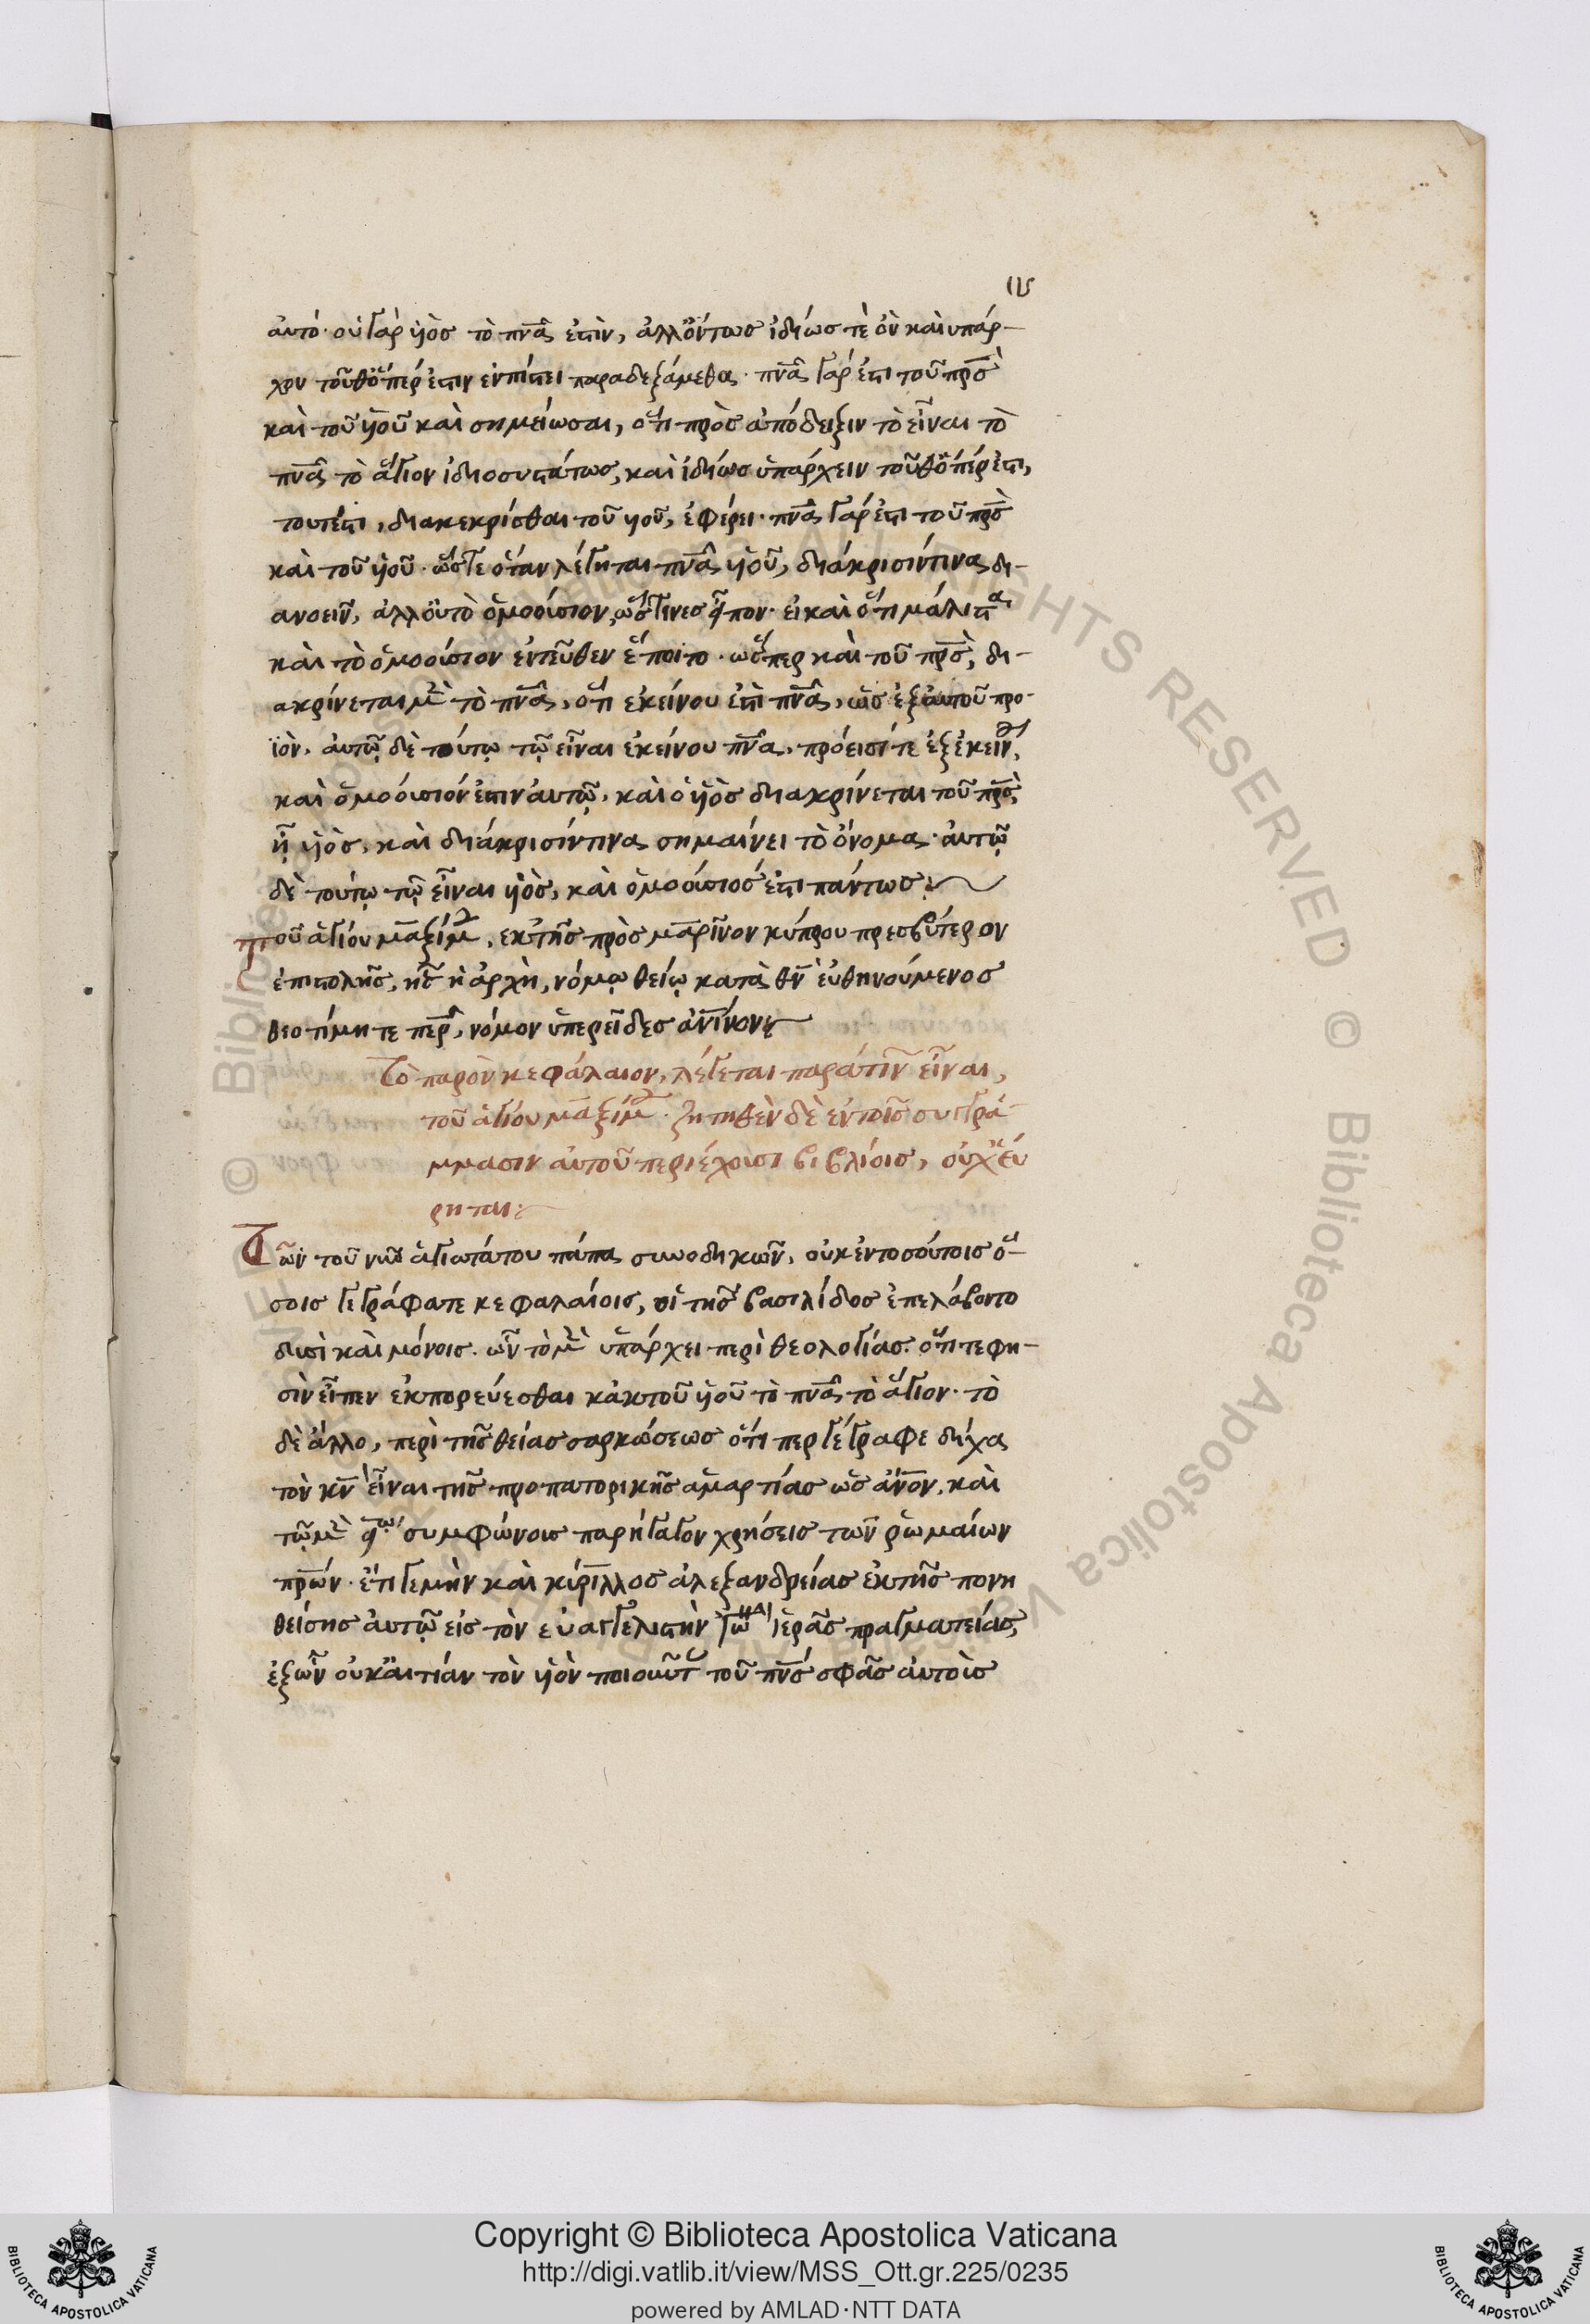 115
αὐτό· οὐ γὰρ ὑιὸς τὸ πνᾶ ἐστὶν, ἀλλ' ὄντως ἰδίως τὲ ὂν καὶ ὑπάρ-
χον τοῦθ' ὅπέρ ἐστιν ἐν πίστει παραδεξάμεθα. πνᾶ γάρ ἐστι τοῦ πρσ
καὶ τοῦ ὑιοῦ καὶ σημείωσαι, ὅτι πρὸς ἀπόδειξιν τὸ εἶναι τὸ
πνᾶ τὸ ἅγιον ἰδιοσυστάτως, καὶ ἰδίως ὑπάρχειν τοῦθ' ὅπέρ ἐστι,
τουτέστι, διακεκρίσθαι τοῦ υιοῦ, ἐφέρει· πνᾶ γάρ ἐστι τοῦ πρσ
καὶ τοῦ ὑιοῦ· ὥστε ὅταν λέγηται πνᾶ ὑιοῦ, διάκρισίν τινα δι-
ανοεῖν, ἀλλ' οὐ τὸ ὁμοούσιον, ὥς τινες
καὶ τὸ ὁμοούσιον ἐντεῦθεν ἕποιτο· ὥσπερ καὶ τοῦ πρσ, δι-
ακρίνεται μὲν τὸ πνᾶ, ὅτι ἐκείνου ἐστὶ πνᾶ, ὡς ἐξ αὐτοῦ προ-
ϊὸν, αὐτῷ δὲ τούτῳ τῷ εἶναι ἐκείνου πνᾶ, πρόεισί τε ἐξ ἐκείν
καὶ ὁμοούσιόν ἐστιν αὐτῷ, καὶ ὁ ὑιὸς διακρίνεται τοῦ πρσ,
ᾗ ὑιὸς, καὶ διάκρισίν τινα σημαίνει τὸ ὄνομα· αὐτῷ
δὲ τούτῳ τῷ εἶναι ὑιὸς, καὶ ὁμοούσιός ἐστι πάντως:
Τοῦ ἁγίου μαξίμ, ἐκ τῆς πρὸς μαρῖνον κύπρου πρεσβύτερον
ἐπιστολῆς, ἧς ἡ ἀρχὴ, νόμῳ θείῳ κατὰ θν εὐθηνούμενος
θεοτίμητε περ, νόμον
Τὸ παρὸν κεφάλαιον, λέγεται παρά τιν εἶναι,
τοῦ ἁγίου μαξίμ· ζητηθὲν δὲ ἐν τοῖς συγγρά-
μμασιν αὐτοῦ περιέχουσι βιβλίοις, οὐχ' εὕ
ρηται:
Τῶν τοῦ νῦν ἁγιωτάτου πάπα συνοδηκῶν, οὐκ ἐν τοσούτοις ὅ-
σοις γεγράφατε κεφαλαίοις, οἱ τῆς βασιλίδος ἐπελάβοντο
δυσὶ καὶ μόνοις. ὧν τὸ μὲν ὑπάρχει περὶ θεολογίας. ὅτι τε φη-
σὶν εἶπεν ἐκπορεύεσθαι κἀκ τοῦ ὑιοῦ τὸ πνᾶ τὸ ἅγιον· τὸ
δὲ ἄλλο, περὶ τῆς θείας σαρκώσεως ὅτι περ γέγραφε δίχα
τὸν κν εἶναι τῆς προπατορικῆς ἁμαρτίας ὡς ἀνον, καὶ
τῷ μὲν συμφώνοις παρήγαγον χρήσεις τῶν ῥωμαίων
πρων· ἔτι γεμὴν καὶ κύριλλος ἀλεξανδρείας ἐκ τῆς πονη
θείσης αὐτῷ εἰς τὸν εὐαγγελιστὴν ἰω ἱερᾶς πραγματείας,
ἐξ ὧν οὐκ αἰτίαν τὸν ὑιὸν ποιοῦντ τοῦ πνς σφᾶς αὐτοὺς
Copyright © Biblioteca Apostolica Vaticana
http://digi.vatlib.it/view/MSS_Ott.gr.225/0235
powered by AMLAD·NTT DATA